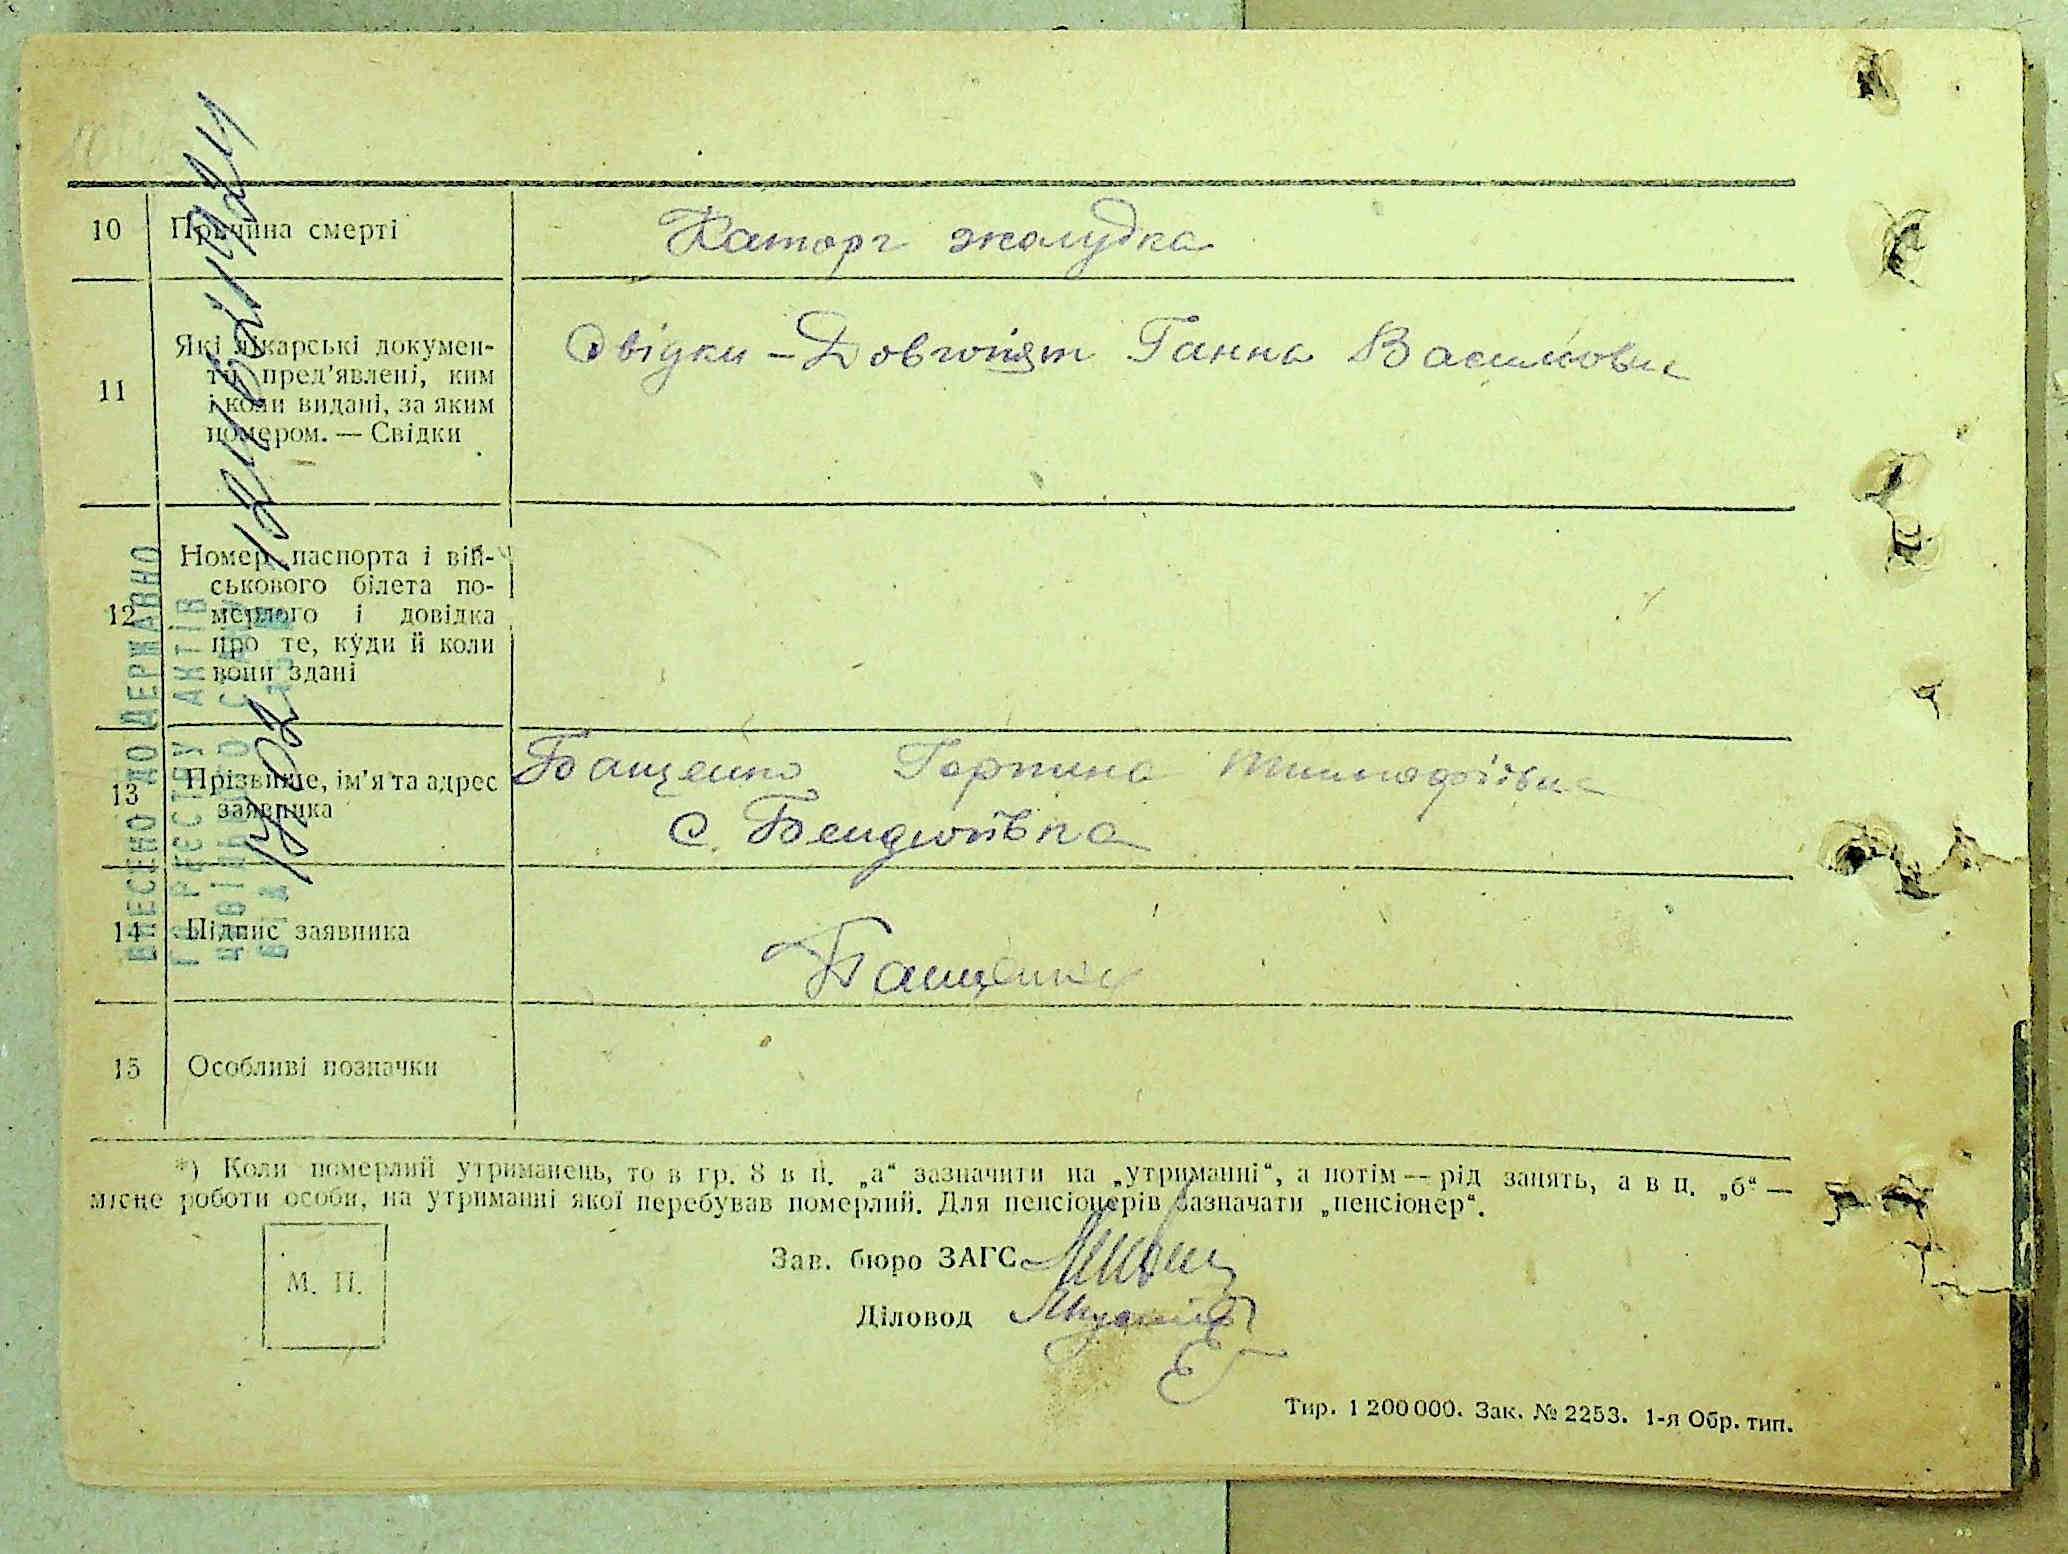 10 Причина смерті Каторг жолудка
11 Які лікарські докумен-
ти пред'явлені, ким
і коли видані, за яким
номером. — Свідки
Свідки – Довгопят Ганна Василівна
12 Номер паспорта і вій-
ськового білета по-
мерлого і довідка
про те, куди й коли
вони здані
13 Прізвище, ім'я та адрес
заявника
Бащенко Горпина Тимофіївна
с.
14 Підпис заявника Бащенко
15 Особливі позначки
*) Коли померлий утриманець, то в гр. 8 в п. „а“ зазначити на „утриманні“, а потім — рід занять, а в п. „б“ —
місце роботи особи, на утриманні якої перебував померлий. Для пенсіонерів зазначати „пенсіонер“.
М. П.
Зав. бюро ЗАГС
Діловод
Тир. 1 200 000. Зак. № 2253. 1-я Обр. тип.
ВНЕСЕНО ДО ДЕРЖАВНО
ГО РЕЄСТРУ АКТІВ